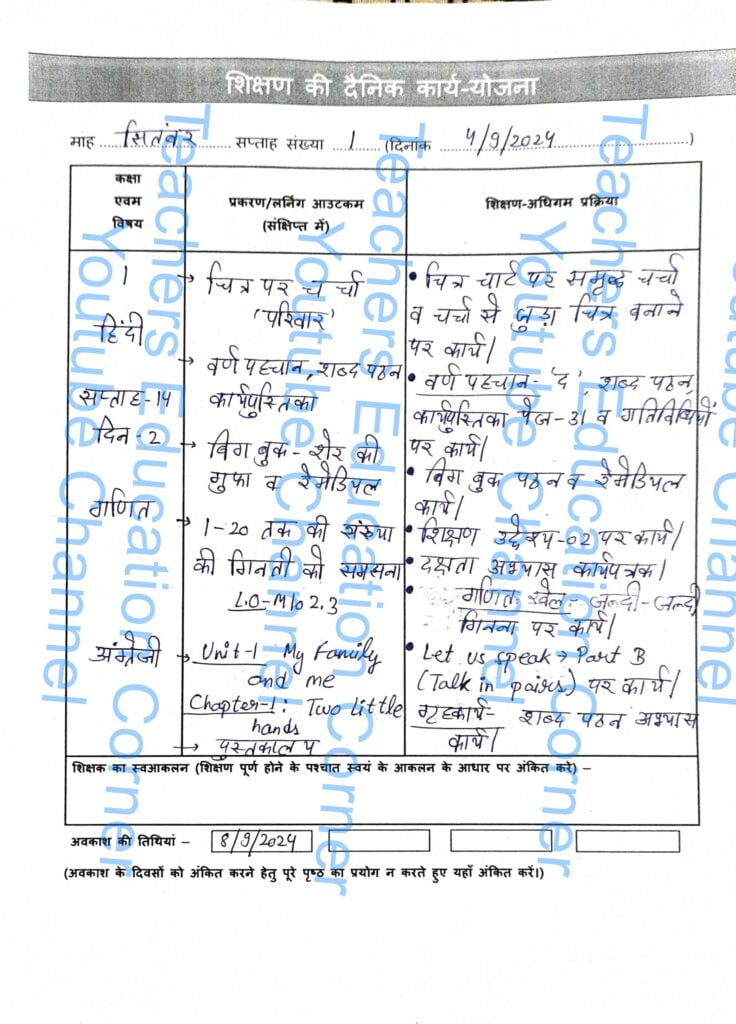 शिक्षण की दैनिक कार्य-योजना
माह सितंबर सप्ताह संख्या 1 (दिनांक 4/9/2024)
कक्षा
एवम
विषय
प्रकरण/लर्निंग आउटकम
(संक्षिप्त में)
शिक्षण-अधिगम प्रक्रिया
1
हिंदी
सप्ताह-14
दिन-2
→ चित्र पर चर्चा
'परिवार'
→ वर्ण पहचान, शब्द पठन
कार्यपुस्तिका
→ बिग बुक - शेर की
गुफा व रेमेडियल
• चित्र चार्ट पर समृद्ध चर्चा
व चर्चा से जुड़ा चित्र बनाने
पर कार्य।
• वर्ण पहचान- 'द', शब्द पठन,
कार्यपुस्तिका पेज-31 व गतिविधियों
पर कार्य।
• बिग बुक पठन व रेमेडियल
कार्य।
गणित
→ 1-20 तक की संख्या
की गिनती को समझना
L.O-M102.3
• शिक्षण उद्देश्य-02 पर कार्य।
• दक्षता अभ्यास कार्यपत्रक।
• गणित खेल- जल्दी-जल्दी
गिनना पर कार्य।
अंग्रेजी
→ Unit-1 My Family
and me
Chapter-1: Two little
hands
→ पुस्तकालय
• Let us speak → Part B
(Talk in pairs) पर कार्य।
गृहकार्य- शब्द पठन अभ्यास
कार्य।
शिक्षक का स्वआकलन (शिक्षण पूर्ण होने के पश्चात स्वयं के आकलन के आधार पर अंकित करे) –
अवकाश की तिथियां – 8/9/2024
(अवकाश के दिवसों को अंकित करने हेतु पूरे पृष्ठ का प्रयोग न करते हुए यहाँ अंकित करें।)
Teachers Education Corner
Youtube Channel
Teachers Education Corner
Youtube Channel
Teachers Education Corner
Youtube Channel